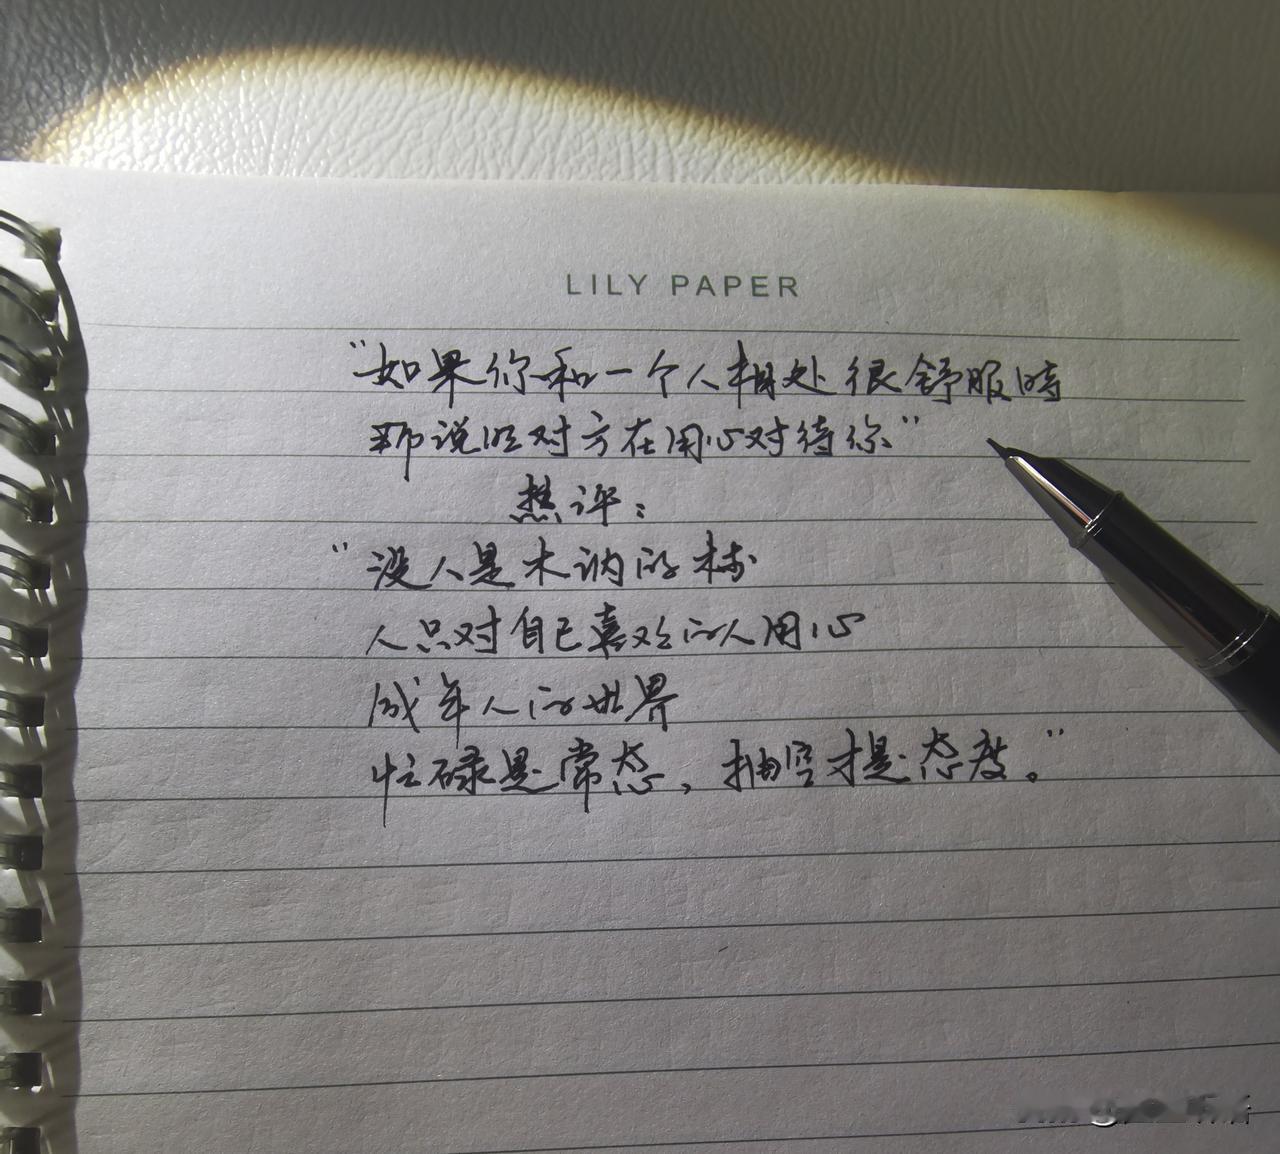 LILY PAPER
“如果你和一个人相处很舒服时
那说明对方在用心对待你”
热评：
“没人是木讷的
人只对自己喜欢的人用心
成年人的世界
忙碌是常态，抽空才是态度。”